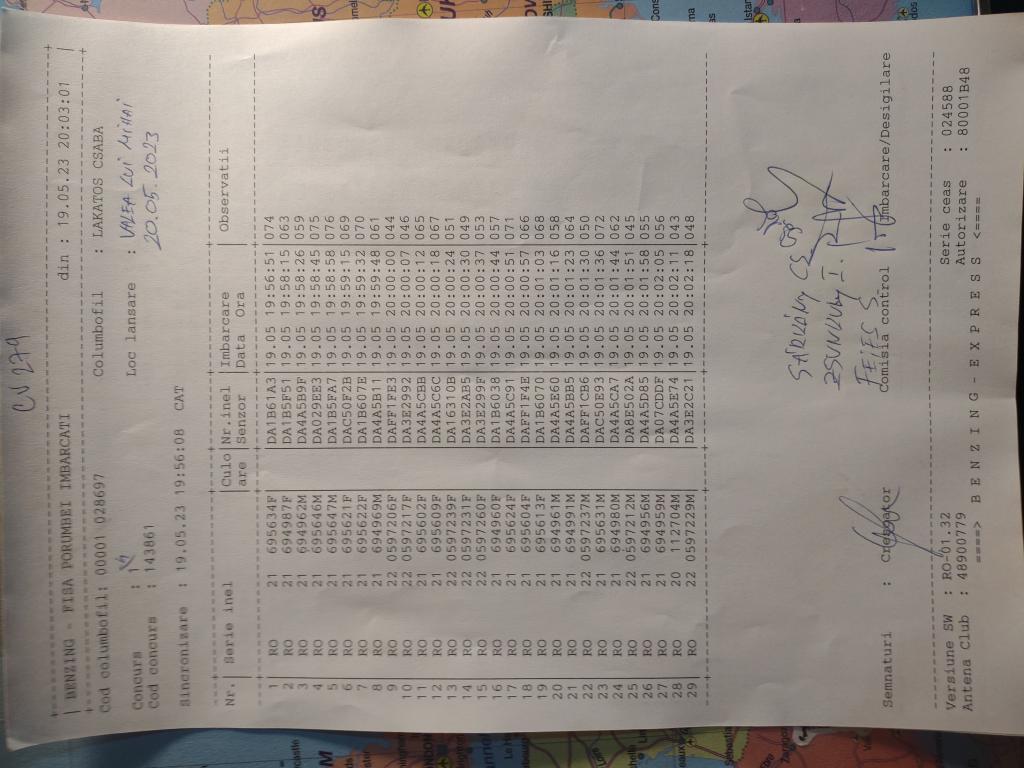 CV 279
BENZING - FISA PORUMBEI IMBARCATI din : 19.05.23 20:03:01
Cod columbofil: 00001 028697 Columbofil : LAKATOS CSABA
Concurs : 1 Loc lansare : VALEA LUI MIHAI
Cod concurs : 143861 20.05.2023
Sincronizare : 19.05.23 19:56:08 CAT
Nr. Serie inel Culo Nr.inel Imbarcare Observatii
are Senzor Data Ora
1 RO 21 695634F DA1B61A3 19.05 19:56:51 074
2 RO 21 694987F DA1B5F51 19.05 19:58:15 063
3 RO 21 694962M DA4A5B9F 19.05 19:58:26 059
4 RO 21 695646M DA029EE3 19.05 19:58:45 075
5 RO 21 695647M DA1B5FA7 19.05 19:58:58 076
6 RO 21 695621F DAC50F2B 19.05 19:59:15 069
7 RO 21 695622F DA1B607E 19.05 19:59:32 070
8 RO 21 694969M DA4A5B11 19.05 19:59:48 061
9 RO 22 0597206F DAFF1FE3 19.05 20:00:00 044
10 RO 22 0597217F DA3E2992 19.05 20:00:07 046
11 RO 21 695602F DA4A5CBB 19.05 20:00:12 065
12 RO 21 695609F DA4A5C6C 19.05 20:00:18 067
13 RO 22 0597239F DA16310B 19.05 20:00:24 051
14 RO 22 0597231F DA3E2AB5 19.05 20:00:30 049
15 RO 22 0597260F DA3E299F 19.05 20:00:37 053
16 RO 21 694960F DA1B6038 19.05 20:00:44 057
17 RO 21 695624F DA4A5C91 19.05 20:00:51 071
18 RO 21 695604F DAFF1F4E 19.05 20:00:57 066
19 RO 21 695613F DA1B6070 19.05 20:01:03 068
20 RO 21 694961M DA4A5E60 19.05 20:01:16 058
21 RO 21 694991M DA4A5BB5 19.05 20:01:23 064
22 RO 22 0597237M DAFF1CB6 19.05 20:01:30 050
23 RO 21 695631M DAC50E93 19.05 20:01:36 072
24 RO 21 694980M DA4A5CA7 19.05 20:01:44 062
25 RO 22 0597212M DA8E502A 19.05 20:01:51 045
26 RO 21 694956M DA4A5DB5 19.05 20:01:58 055
27 RO 21 694959M DA07CDDF 19.05 20:02:05 056
28 RO 20 112704M DA4A5E74 19.05 20:02:11 043
29 RO 22 0597229M DA3E2C21 19.05 20:02:18 048
SÁRKÁNY CS
ZSUNDUKY I.
FEJES S.
Semnaturi : Crescator Comisia control Imbarcare/Desigilare
Versiune SW : RO-01.32 Serie ceas : 024588
Antena Club : 48900779 Autorizare : 80001B48
=====> B E N Z I N G - E X P R E S S <====